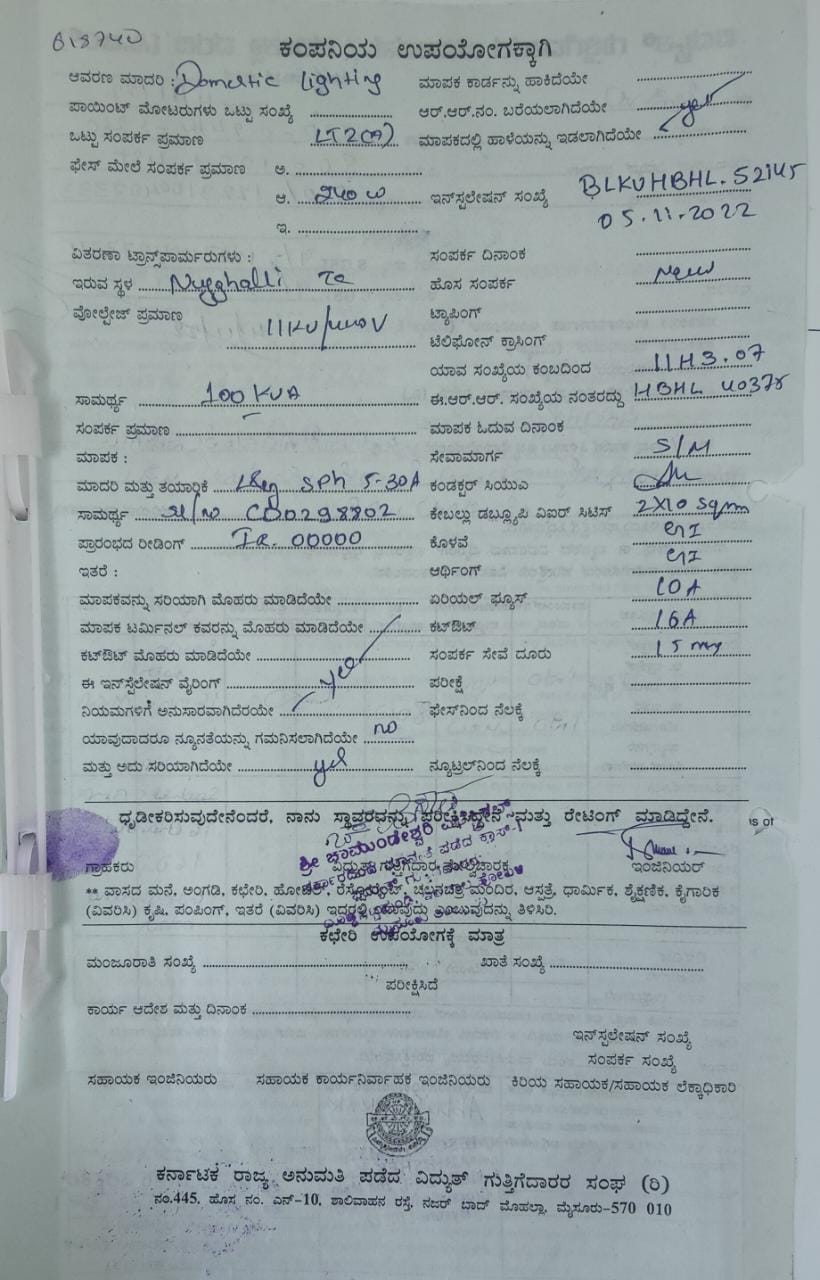 ಕಂಪನಿಯ ಉಪಯೋಗಕ್ಕಾಗಿ
ಆವರಣ ಮಾದರಿ : Domestic Lighting ಮಾಪಕ ಕಾರ್ಡನ್ನು ಹಾಕಿದೆಯೇ
ಪಾಯಿಂಟ್ ಮೋಟರುಗಳು ಒಟ್ಟು ಸಂಖ್ಯೆ ಆರ್.ಆರ್.ನಂ. ಬರೆಯಲಾಗಿದೆಯೇ yes
ಒಟ್ಟು ಸಂಪರ್ಕ ಪ್ರಮಾಣ LT2(a) ಮಾಪಕದಲ್ಲಿ ಹಾಳೆಯನ್ನು ಇಡಲಾಗಿದೆಯೇ
ಫೇಸ್ ಮೇಲೆ ಸಂಪರ್ಕ ಪ್ರಮಾಣ ಅ.
ಆ. 240 W ಇನ್‌ಸ್ಪಲೇಷನ್ ಸಂಖ್ಯೆ BLKUHBHL.52145
ಇ. 05.11.2022
ವಿತರಣಾ ಟ್ರಾನ್ಸ್‌ಪಾರ್ಮರುಗಳು : ಸಂಪರ್ಕ ದಿನಾಂಕ
ಇರುವ ಸ್ಥಳ Nugghalli Tc ಹೊಸ ಸಂಪರ್ಕ New
ವೋಲ್ಟೇಜ್ ಪ್ರಮಾಣ 11KV/440V ಟ್ಯಾಪಿಂಗ್
ಟೆಲಿಫೋನ್ ಕ್ರಾಸಿಂಗ್
ಯಾವ ಸಂಖ್ಯೆಯ ಕಂಬದಿಂದ 11H3.07
ಸಾಮರ್ಥ್ಯ 100 KVA ಈ.ಆರ್.ಆರ್. ಸಂಖ್ಯೆಯ ನಂತರದ್ದು HBHL 40375
ಸಂಪರ್ಕ ಪ್ರಮಾಣ ಮಾಪಕ ಓದುವ ದಿನಾಂಕ
ಮಾಪಕ : ಸೇವಾಮಾರ್ಗ S/M
ಮಾದರಿ ಮತ್ತು ತಯಾರಿಕೆ SPh 5-30A ಕಂಡಕ್ಟರ್ ಸಿಯುವಿ
ಸಾಮರ್ಥ್ಯ Sl/No CD0298802 ಕೇಬಲ್ಲು ಡಬ್ಲ್ಯೂಪಿ ವಿಐರ್ ಸಿಟಿಸ್ 2X10 Sqmm
ಪ್ರಾರಂಭದ ರೀಡಿಂಗ್ IR. 00000 ಕೊಳವೆ GI
ಇತರೆ : ಆರ್ಥಿಂಗ್ GI
ಮಾಪಕವನ್ನು ಸರಿಯಾಗಿ ಮೊಹರು ಮಾಡಿದೆಯೇ ಏರಿಯಲ್ ಫ್ಯೂಸ್ 10A
ಮಾಪಕ ಟರ್ಮಿನಲ್ ಕವರನ್ನು ಮೊಹರು ಮಾಡಿದೆಯೇ ಕಟ್‌ಔಟ್ 16A
ಕಟ್‌ಔಟ್ ಮೊಹರು ಮಾಡಿದೆಯೇ ಸಂಪರ್ಕ ಸೇವೆ ದೂರು 15 m
ಈ ಇನ್‌ಸ್ಟೆಲೇಷನ್ ವೈರಿಂಗ್ yes ಪರೀಕ್ಷೆ
ನಿಯಮಗಳಿಗೆ ಅನುಸಾರವಾಗಿದೆರಯೇ ಫೇಸ್‌ನಿಂದ ನೆಲಕ್ಕೆ
ಯಾವುದಾದರೂ ನ್ಯೂನತೆಯನ್ನು ಗಮನಿಸಲಾಗಿದೆಯೇ no
ಮತ್ತು ಅದು ಸರಿಯಾಗಿದೆಯೇ yes ನ್ಯೂಟ್ರಲ್‌ನಿಂದ ನೆಲಕ್ಕೆ
ಧೃಡೀಕರಿಸುವುದೇನೆಂದರೆ, ನಾನು ಸ್ಥಾವರವನ್ನು ಪರೀಕ್ಷಿಸಿದ್ದೇನೆ ಮತ್ತು ರೇಟಿಂಗ್ ಮಾಡಿದ್ದೇನೆ.
ಶ್ರೀ ಚಾಮುಂಡೇಶ್ವರಿ
ಗ್ರಾಹಕರು ವಿದ್ಯುತ್ ಗುತ್ತಿಗೆದಾರ ಇಂಜಿನಿಯರ್
** ವಾಸದ ಮನೆ, ಅಂಗಡಿ, ಕಛೇರಿ, ಹೋಟೆಲ್, ರೆಸ್ಟೋರೆಂಟ್, ಚಲನಚಿತ್ರ ಮಂದಿರ, ಆಸ್ಪತ್ರೆ, ಧಾರ್ಮಿಕ, ಶೈಕ್ಷಣಿಕ, ಕೈಗಾರಿಕ
(ವಿವರಿಸಿ) ಕೃಷಿ, ಪಂಪಿಂಗ್, ಇತರೆ (ವಿವರಿಸಿ) ಇದರಲ್ಲಿ ಯಾವುದು ಎಂಬುವುದನ್ನು ತಿಳಿಸಿರಿ.
ಕಛೇರಿ ಉಪಯೋಗಕ್ಕೆ ಮಾತ್ರ
ಮಂಜೂರಾತಿ ಸಂಖ್ಯೆ ಖಾತೆ ಸಂಖ್ಯೆ
ಪರೀಕ್ಷಿಸಿದೆ
ಕಾರ್ಯ ಆದೇಶ ಮತ್ತು ದಿನಾಂಕ
ಇನ್‌ಸ್ಪಲೇಷನ್ ಸಂಖ್ಯೆ
ಸಂಪರ್ಕ ಸಂಖ್ಯೆ
ಸಹಾಯಕ ಇಂಜಿನಿಯರು ಸಹಾಯಕ ಕಾರ್ಯನಿರ್ವಾಹಕ ಇಂಜಿನಿಯರು ಕಿರಿಯ ಸಹಾಯಕ/ಸಹಾಯಕ ಲೆಕ್ಕಾಧಿಕಾರಿ
ಕರ್ನಾಟಕ ರಾಜ್ಯ ಅನುಮತಿ ಪಡೆದ ವಿದ್ಯುತ್ ಗುತ್ತಿಗೆದಾರರ ಸಂಘ (ರಿ)
ನಂ.445, ಹೊಸ ನಂ. ಎನ್-10, ಶಾಲಿವಾಹನ ರಸ್ತೆ, ನಜರ್ ಬಾದ್ ಮೊಹಲ್ಲಾ, ಮೈಸೂರು-570 010